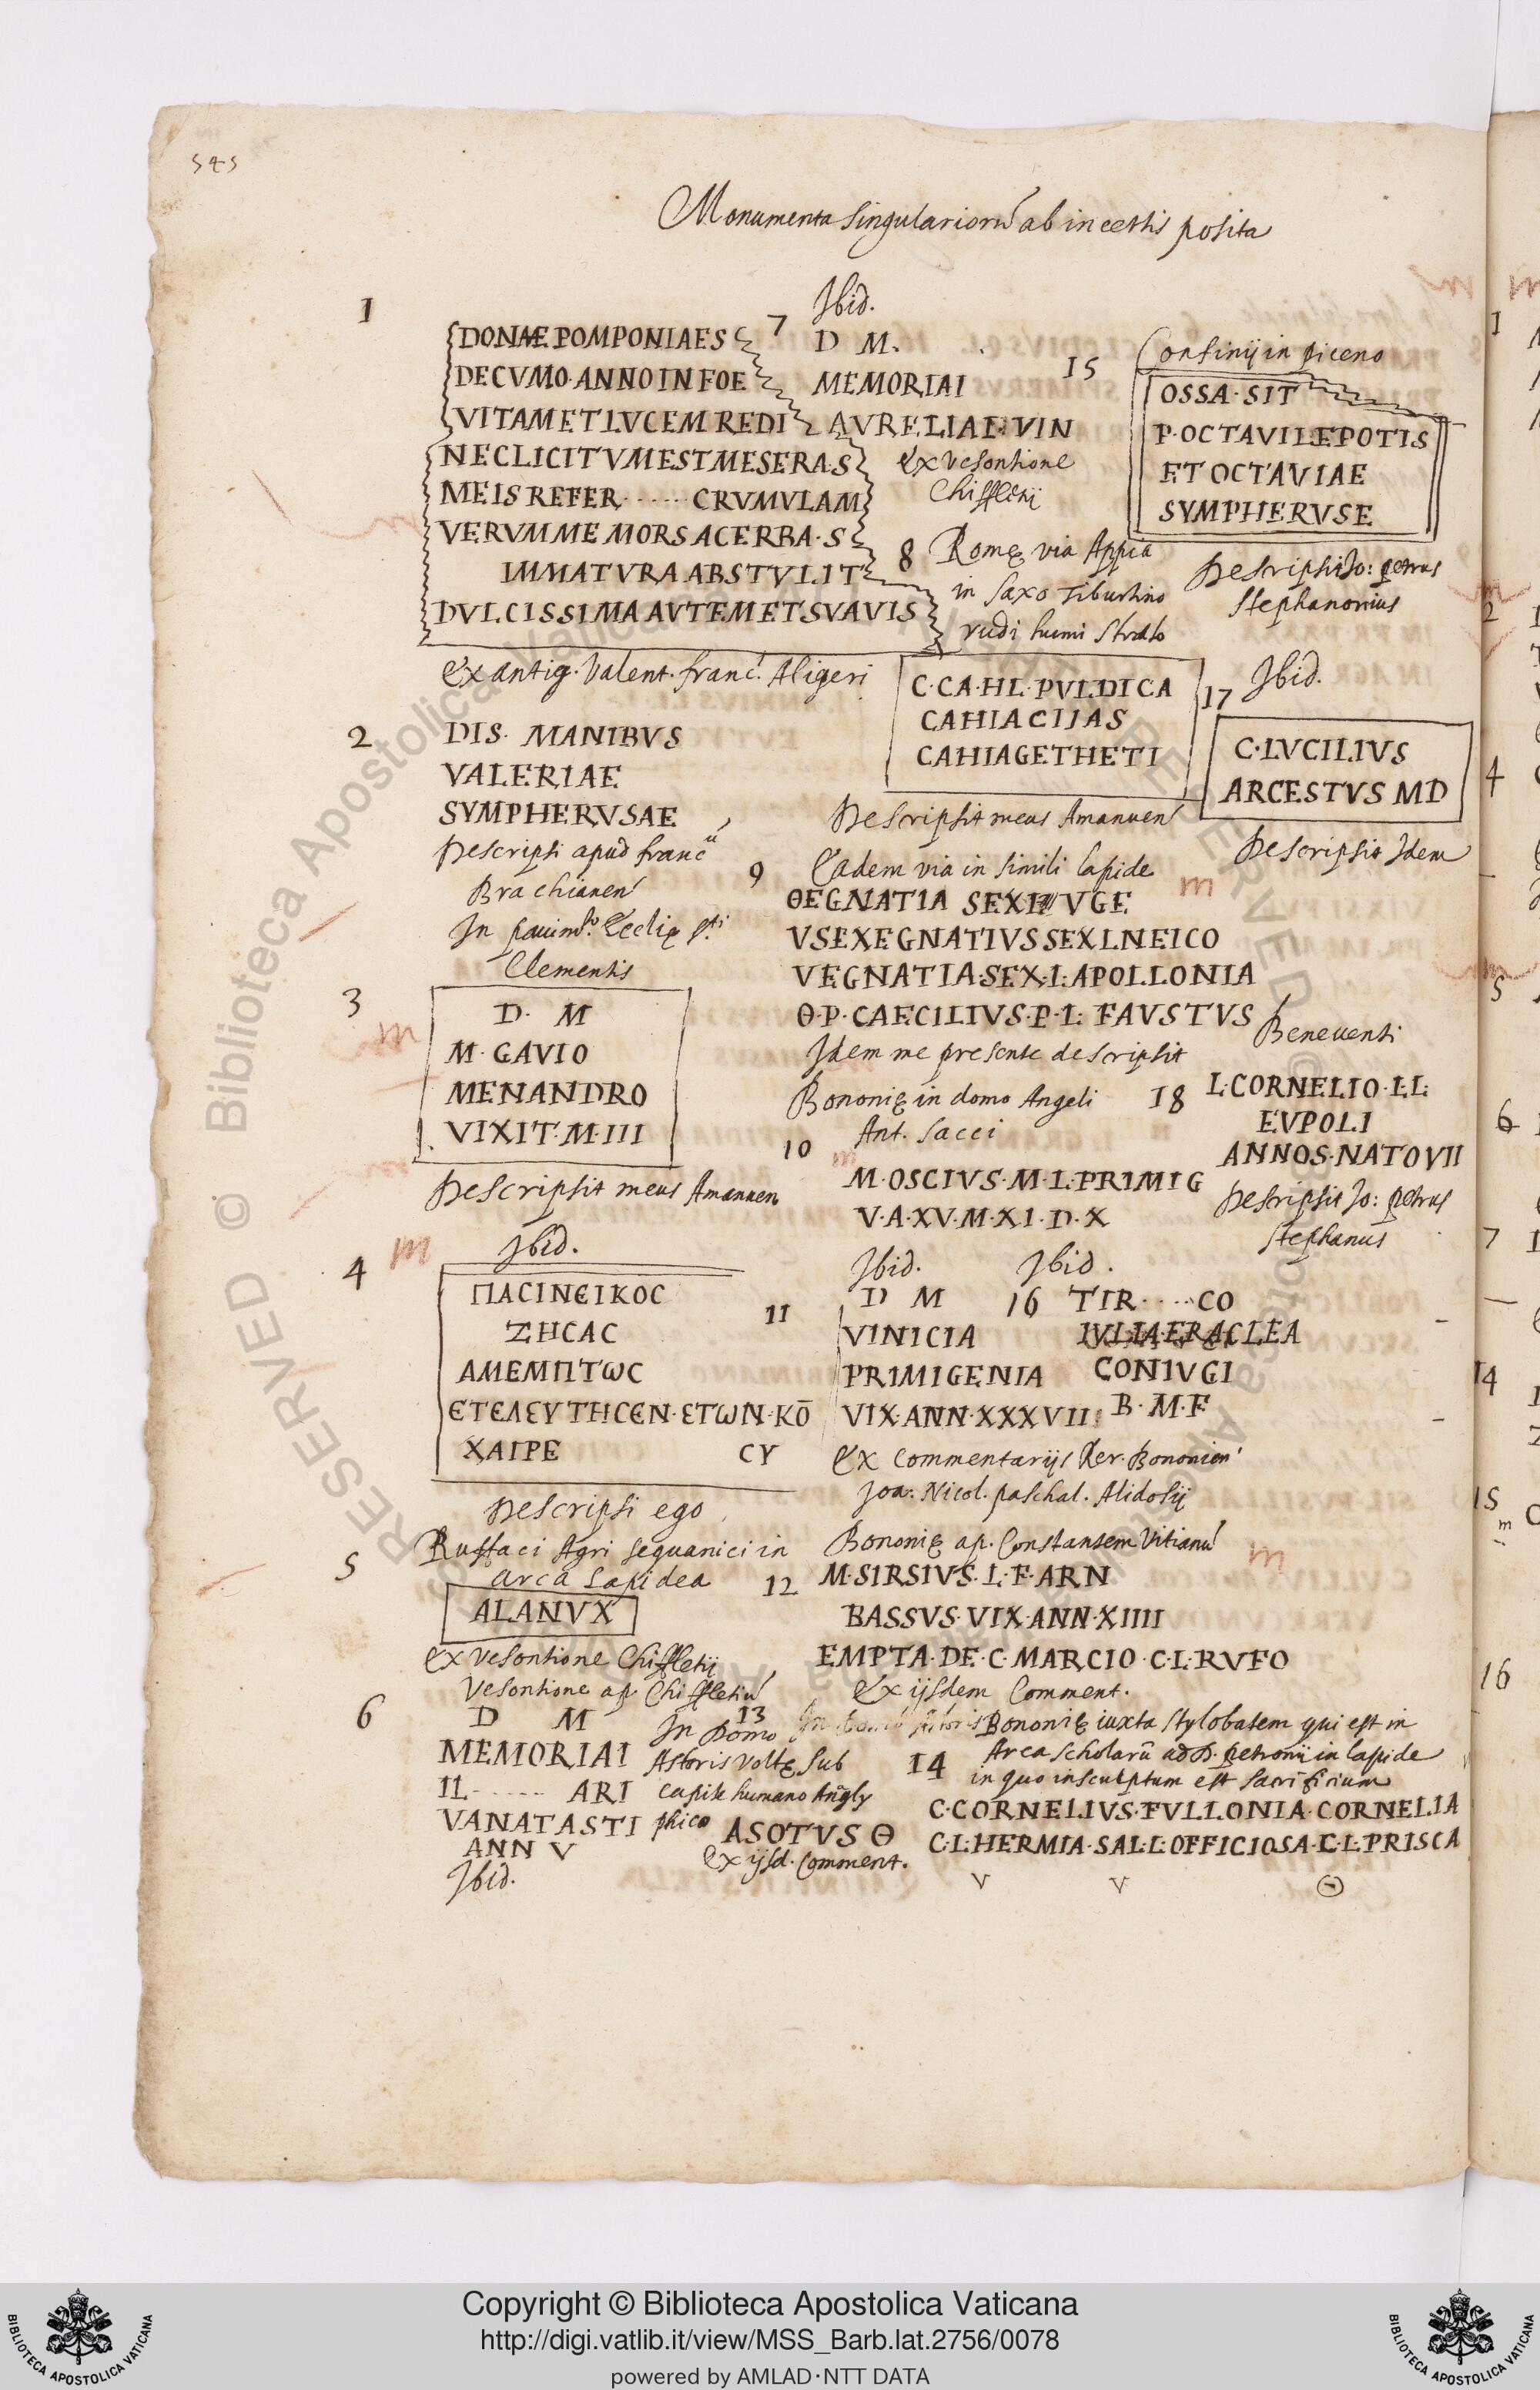 545
Monumenta singulariorũ ab incertis posita
1
DONAE POMPONIAE S
DECVMO·ANNO IN FOE
VITAM ET LVCEM REDI
NEC LICITVM EST MESERA·S
MEIS REFER······CRVMVLAM
VERVM ME MORS ACERBA·S
IMMATVRA ABSTVLIT
DVLCISSIMA AVTEM ET SVAVIS
Ex antiq. Valent. franc. Aligeri
2
DIS· MANIBVS
VALERIAE
SYMPHERVSAE
Descripsi apud franc
Brachianen
In pauimto Ecclię sti
Clementis
3
D· M
M·GAVIO
MENANDRO
VIXIT·M·III
Descripsit meus Amanuen
Ibid.
4
ΠΑCΙΝЄΙΚΟC
ΖΗCΑC
ΑΜΕΜΠΤωC
ЄΤЄΛЄΥΤΗCЄΝ·ЄΤωΝ·ΚŌ
ΧΑΙΡΕ CΥ
Descripsi ego
Ruffaci Agri sequanici in
arca lapidea
5
ALANVX
Ex Vesontione Chiffletij
Vesontione ap. Chiffletiũ
6
D M
MEMORIAI
IL····· ARI
VANATASTI
ANN V
Ibid.
Ibid.
7
D M.
MEMORIAI
AVRELIAE·VIN
Ex Vesontione
Chiffletij
8 Romę via Appia
in saxo Tiburtino
rudi humi strato
C·CA·HL·PVLDICA
CAHIACIJAS
CAHIAGETHETI
Descripsit meus Amanuen
9 Eadem via in simili lapide
ΘEGNATIA SEX VGE
VSEXEGNATIVSSEXLNEICO
VEGNATIA·SEX·L·APOLLONIA
Θ·P·CAECILIVS·P·L· FAVSTVS
Idem me presente descripsit
Bononię in domo Angeli
Ant. Sacci
10
M·OSCIVS·M·L·PRIMIG
V·A·XV·M·XI·D·X
Ibid.
11
D M
VINICIA
PRIMIGENIA
VIX·ANN·XXXVII
Ibid.
16 TIR·····CO
IVLIA·ERACLEA
CONIVGI
B·M·F
Ex Commentarijs Rer. Bononien
Joa. Nicol. paschal. Alidosij
Bononię ap. Constantem Vitianũ
12
M·SIRSIVS·L·F·ARN
BASSVS·VIX·ANN·XIIII
EMPTA·DE·C·MARCIO·C·L·RVFO
Ex ijsdem Comment.
13
In Domo
Astoris Voltę sub
capite humano Angly
phico
ASOTVS Θ
Ex ijsd. Comment.
14
Bononię iuxta stylobatem qui est in
Arca scholarũ ad D. petronij in lapide
in quo insculptum est sacrificium
C·CORNELIVS·FVLLONIA·CORNELIA
C·L·HERMIA·SAL·L·OFFICIOSA·C·L·PRISCA
V V Θ
15
Confinij in piceno
OSSA·SIT
P·OCTAVI LEPOTIS
ET OCTAVIAE
SYMPHERVSE
Descripsit Jo: petrus
Stephanonius
Ibid.
17
C·LVCILIVS
ARCESTVS MD
Descripsit Idem
Beneuenti
18 L·CORNELIO·L·L·
EVPOLI
ANNOS·NATO VII
Descripsit Jo: petrus
Stephanus
1
2
4
5
6
7
14
15
m
16
RESERVED © Biblioteca Apostolica Vaticana
Copyright © Biblioteca Apostolica Vaticana
http://digi.vatlib.it/view/MSS_Barb.lat.2756/0078
powered by AMLAD·NTT DATA
BIBLIOTECA APOSTOLICA VATICANA
BIBLIOTECA APOSTOLICA VATICANA